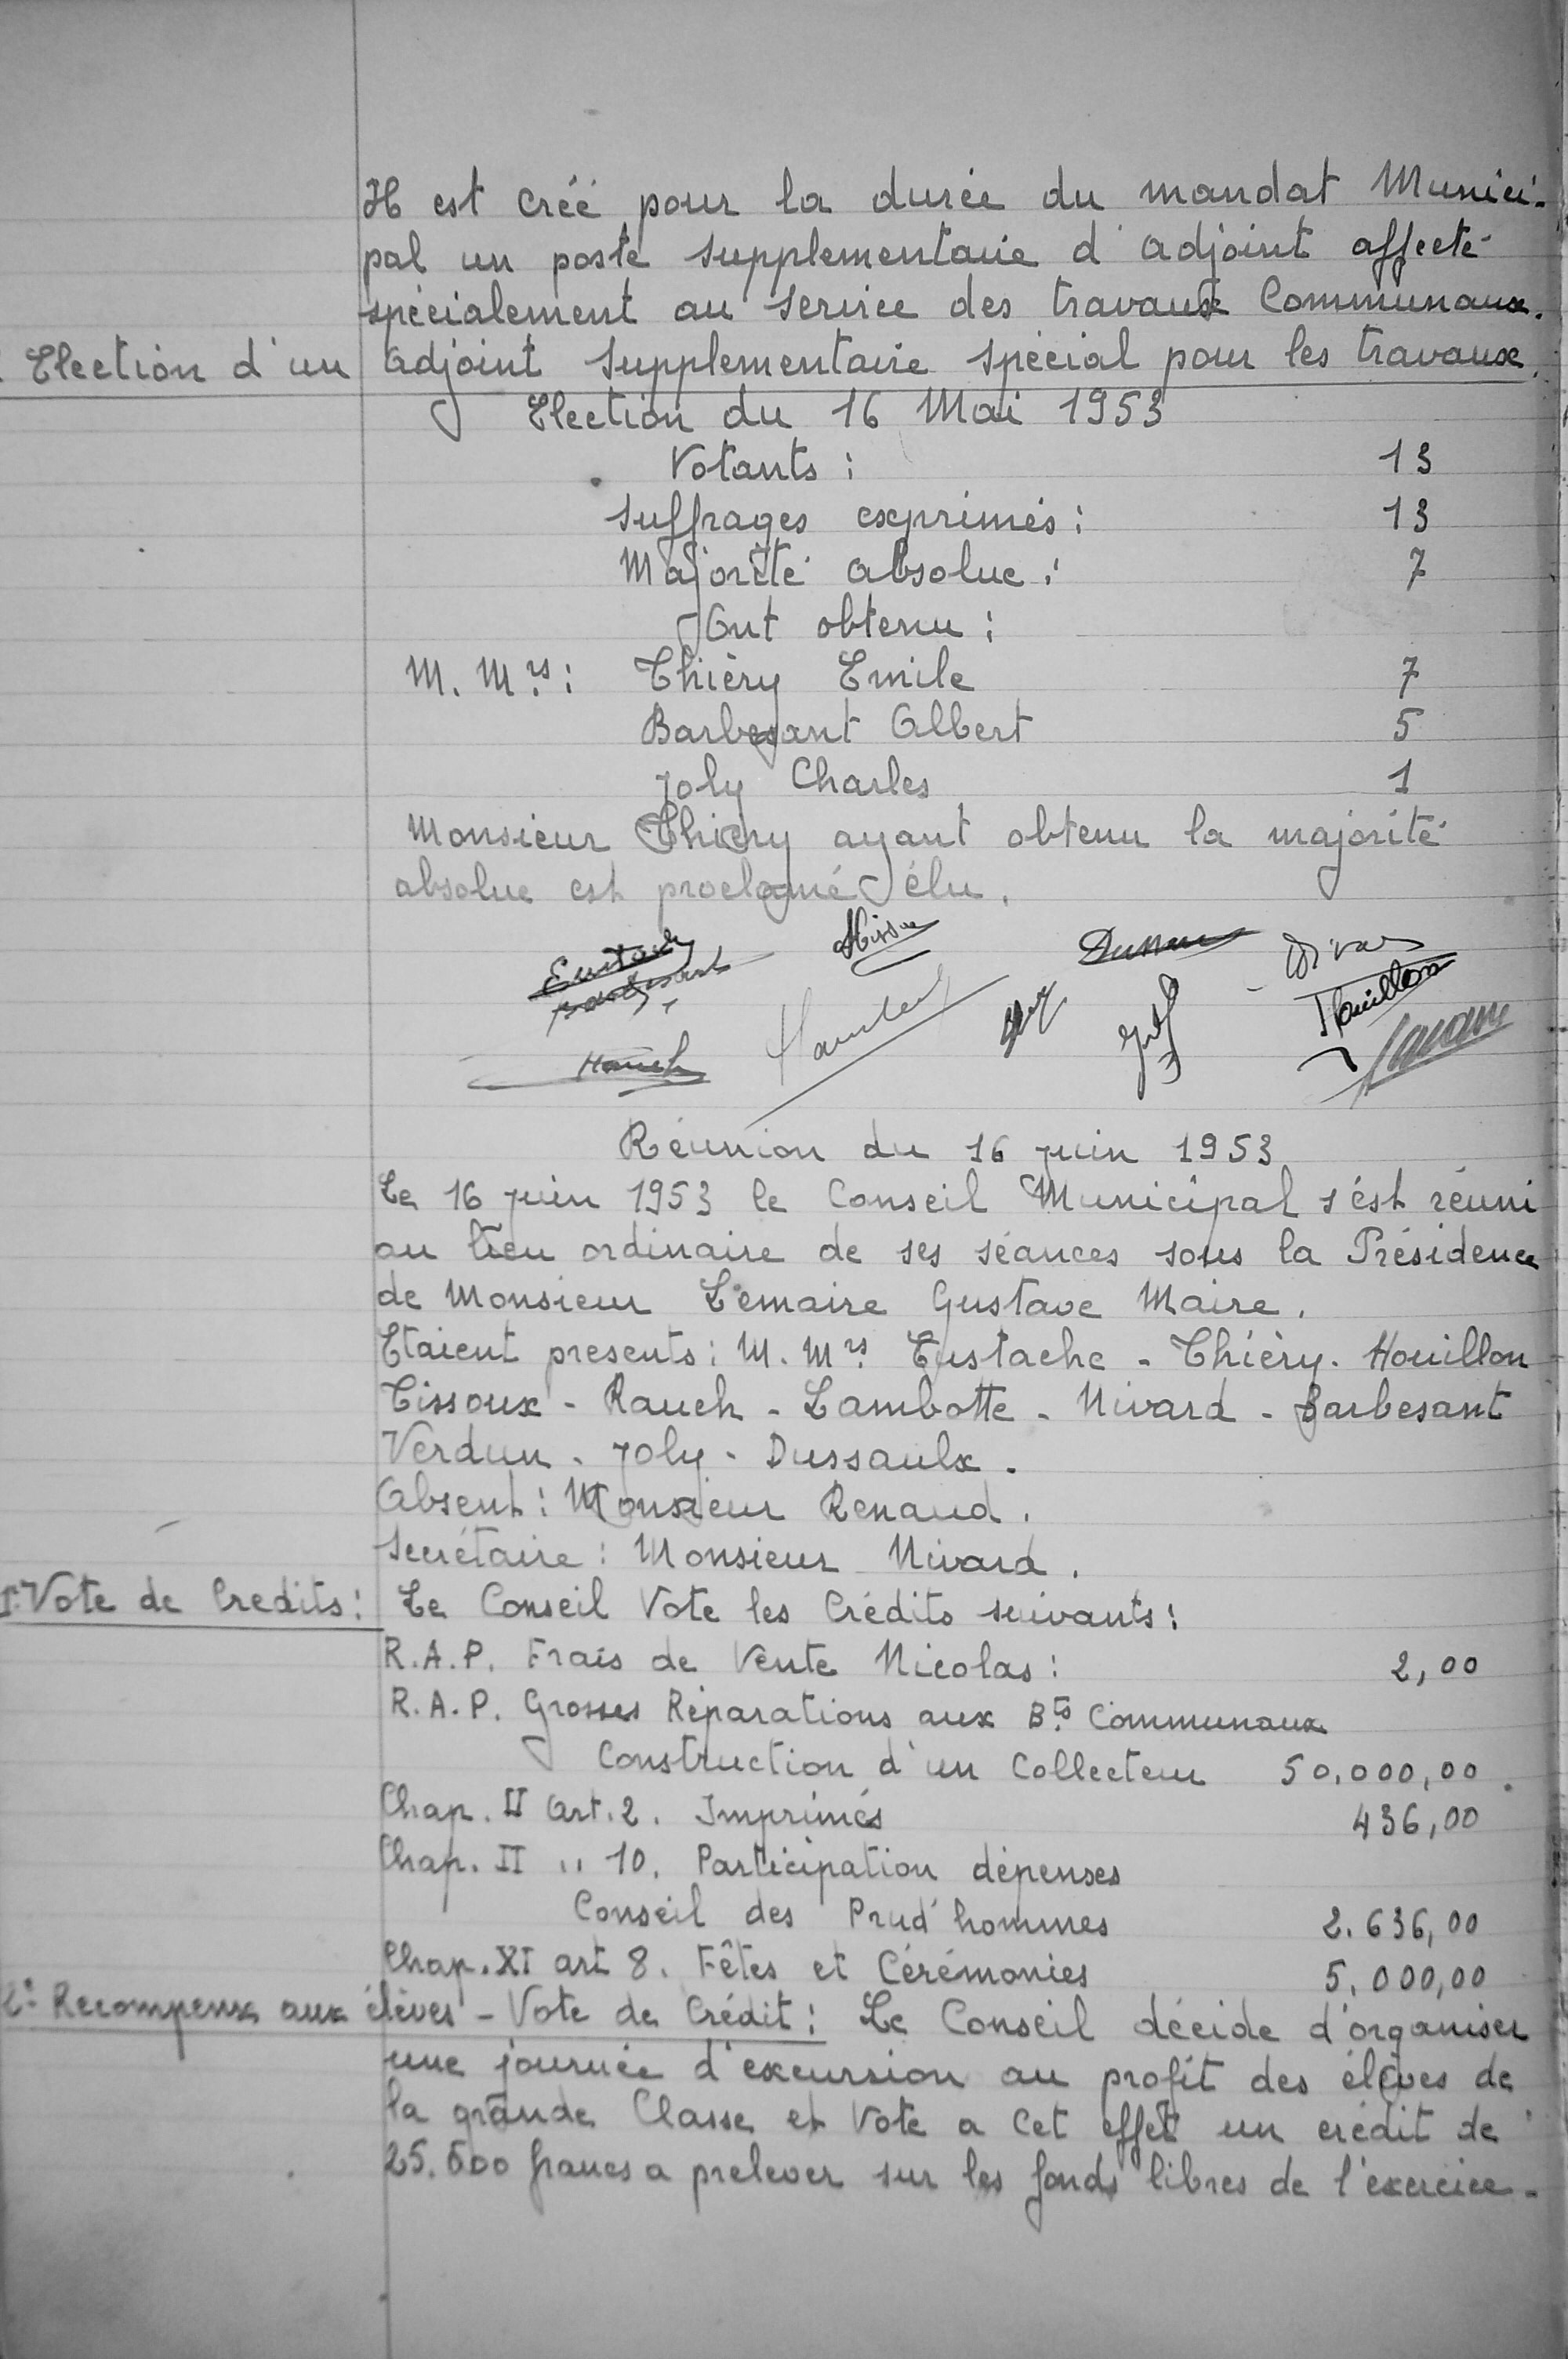 Il est créé pour la durée du mandat Munici-
pal un poste supplementaire d'adjoint affecté
spécialement au service des travaux Communaux.
Election d'un adjoint supplementaire spécial pour les travaux.
Election du 16 Mai 1953
Votants : 13
Suffrages exprimés : 13
Majorité absolue : 7
Ont obtenu :
M. Mrs : Thièry Emile 7
Barbesant Albert 5
Joly Charles 1
Monsieur Thiéry ayant obtenu la majorité
absolue est proclamé élu.
Réunion du 16 juin 1953
Le 16 juin 1953 le Conseil Municipal s'ést réuni
au lieu ordinaire de ses séances sous la Présidence
de Monsieur Lemaire Gustave Maire.
Etaient presents : M. Mrs Eustache - Thièry - Houillon
Tissoux - Rauch - Lambotte - Nivard - Barbesant
Verdun - Joly - Dussaulx.
Absent : Monsieur Renaud.
Secrétaire : Monsieur Nivard.
1° Vote de Credits : Le Conseil Vote les Crédits suivants :
R.A.P. Frais de Vente Nicolas : 2,00
R.A.P. Grosses Réparations aux Bts Communaux
Construction d'un Collecteur 50.000,00
Chap. II art. 2. Imprimés 436,00
Chap. II " 10. Participation dépenses
Conseil des Prud'hommes 2.636,00
Chap. XI art 8. Fêtes et Cérémonies 5.000,00
2° Recompenses aux élèves - Vote de Crédit : Le Conseil décide d'organiser
une journée d'excursion au profit des élèves de
la grande Classe et Vote a Cet effet un crédit de
25.500 francs a prelever sur les fonds libres de l'exercice.